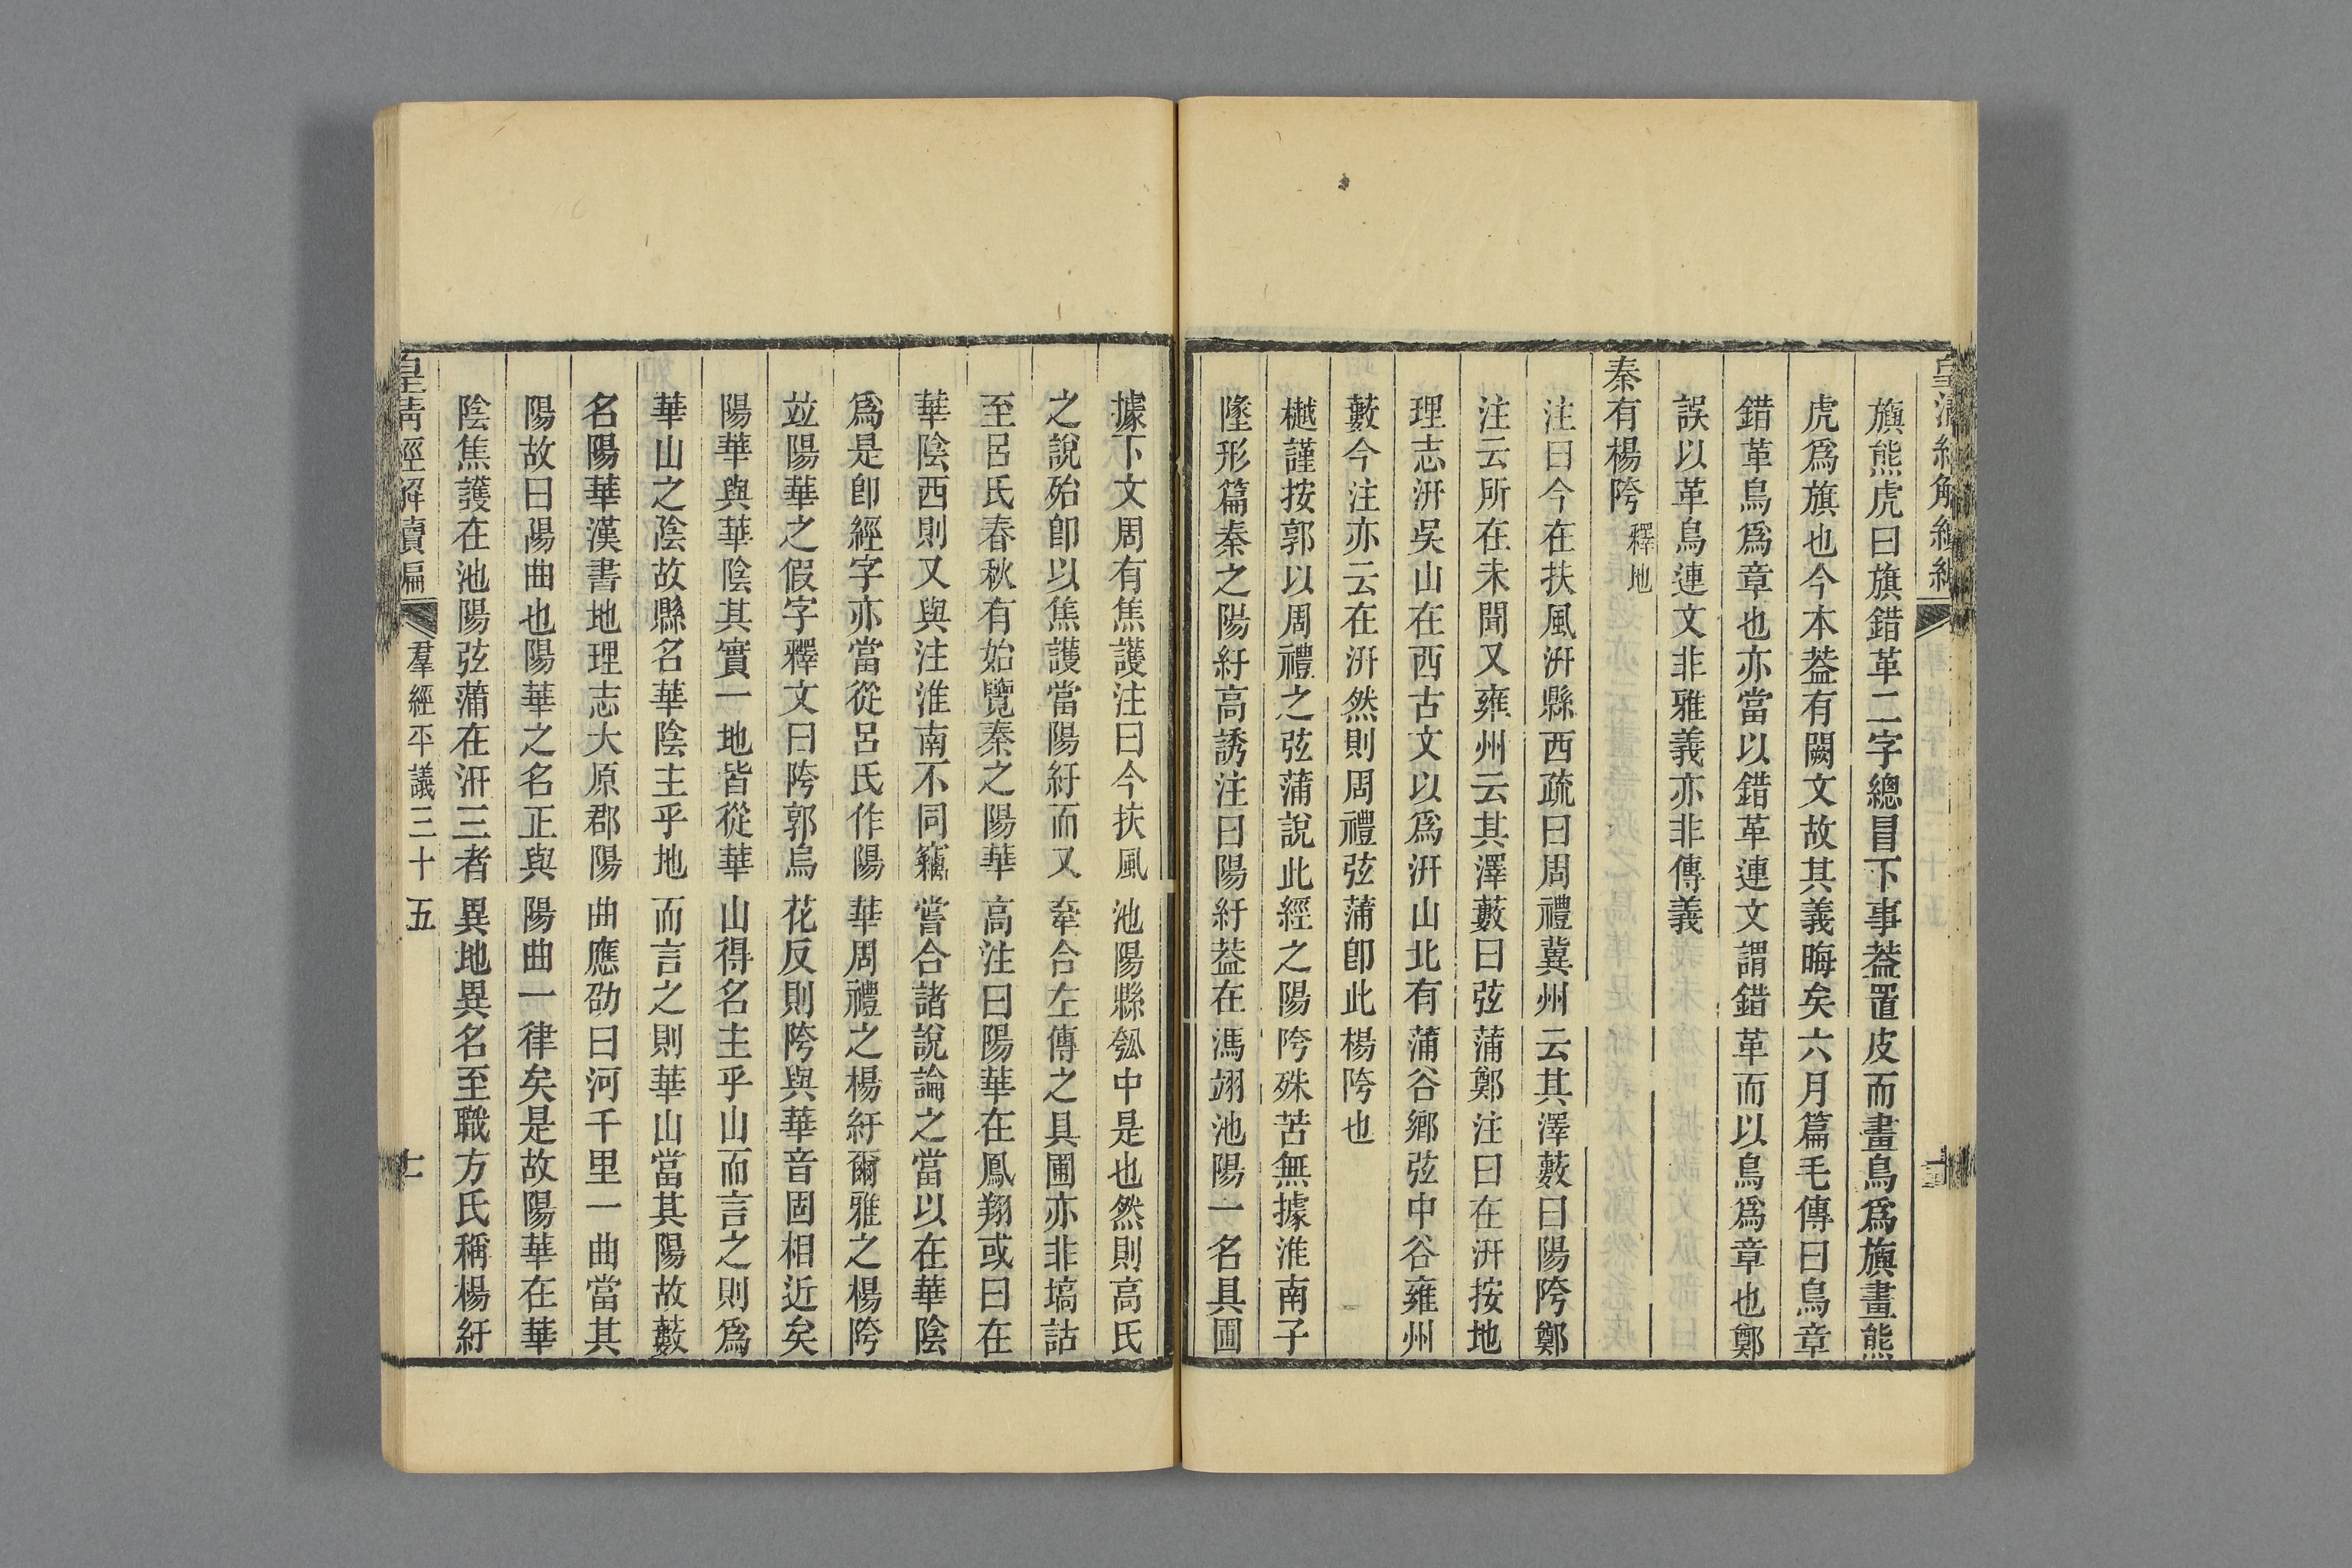 旟熊虎曰旗錯革二字總冒下事葢置皮而畫鳥爲旟畫熊
虎爲旗也今本葢有闕文故其義晦矣六月篇毛傳曰鳥章
錯革鳥爲章也亦當以錯革連文謂錯革而以鳥爲章也鄭
誤以革鳥連文非雅義亦非傳義
秦有楊陓 釋地
注曰今在扶風汧縣西疏曰周禮冀州云其澤藪曰陽陓鄭
注云所在未聞又雍州云其澤藪曰弦蒲鄭注曰在汧按地
理志汧吳山在西古文以爲汧山北有蒲谷鄉弦中谷雍州
藪今注亦云在汧然則周禮弦蒲卽此楊陓也
樾謹按郭以周禮之弦蒲說此經之陽陓殊苦無據淮南子
墬形篇秦之陽紆高誘注曰陽紆葢在馮翊池陽一名具圃
據下文周有焦護注曰今扶風池陽縣瓠中是也然則高氏
之說殆卽以焦護當陽紆而又牽合左傳之具圃亦非塙詁
至呂氏春秋有始覽秦之陽華高注曰陽華在鳳翔或曰在
華陰西則又與注淮南不同竊嘗合諸說論之當以在華陰
爲是卽經字亦當從呂氏作陽華周禮之楊紆爾雅之楊陓
竝陽華之假字釋文曰陓郭烏花反則陓與華音固相近矣
陽華與華陰其實一地皆從華山得名主乎山而言之則爲
華山之陰故縣名華陰主乎地而言之則華山當其陽故藪
名陽華漢書地理志大原郡陽曲應劭曰河千里一曲當其
陽故曰陽曲也陽華之名正與陽曲一律矣是故陽華在華
陰焦護在池陽弦蒲在汧三者異地異名至職方氏稱楊紆
皇清經解續編 羣經平議三十五